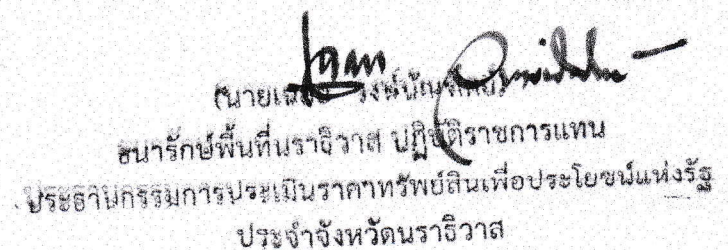 ธนารักษ์พื้นที่นราธิวาส ปฏิบัติราชการแทน
ประธานกรรมการประเมินราคาทรัพย์สินเพื่อประโยชน์แห่งรัฐ
ประจำจังหวัดนราธิวาส